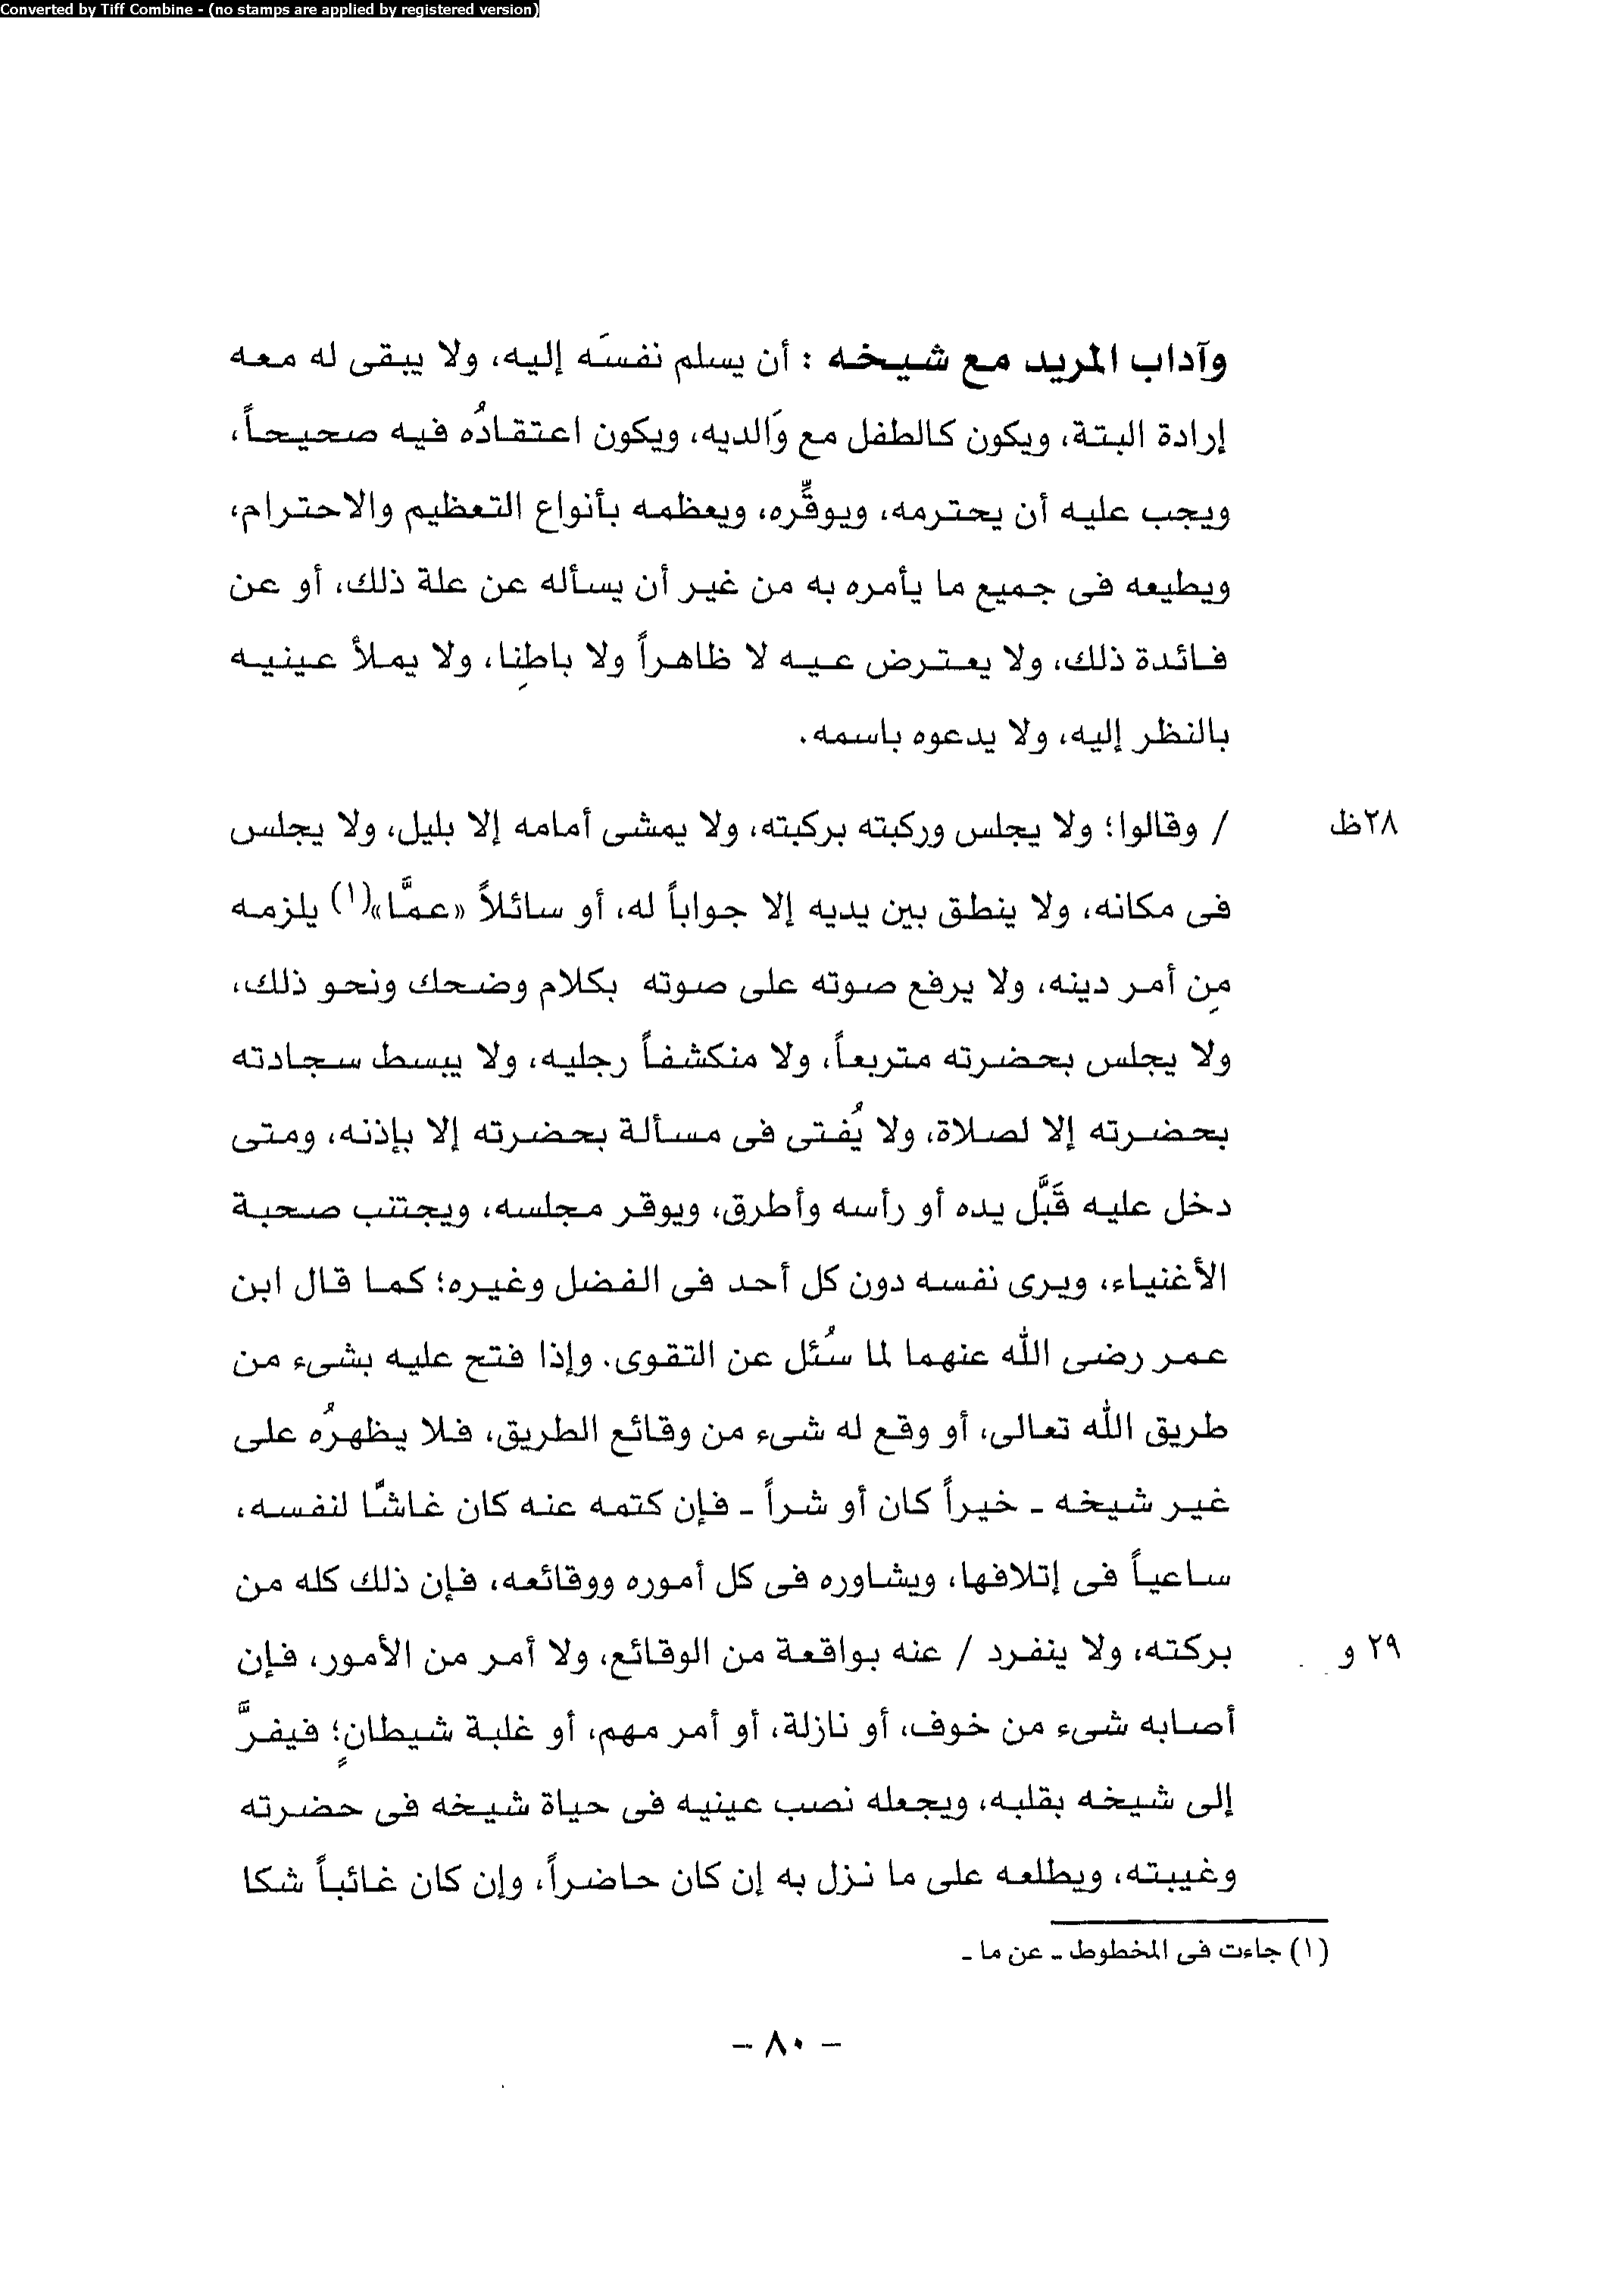 Converted by Tiff Combine - (no stamps are applied by registered version)
وآداب المريد مع شيخه : أن يسلم نفسَه إليه، ولا يبقى له معه
إرادة البتة، ويكون كالطفل مع وَالديه، ويكون اعتقادُه فيه صحيحاً،
ويجب عليه أن يحترمه، ويوقِّره، ويعظمه بأنواع التعظيم والاحترام،
ويطيعه فى جميع ما يأمره به من غير أن يسأله عن علة ذلك، أو عن
فائدة ذلك، ولا يعترض عيه لا ظاهراً ولا باطنِا، ولا يملأ عينيه
بالنظر إليه، ولا يدعوه باسمه.
٢٨ظ / وقالوا؛ ولا يجلس وركبته بركبته، ولا يمشى أمامه إلا بليل، ولا يجلس
فى مكانه، ولا ينطق بين يديه إلا جواباً له، أو سائلاً «عمَّا»(١) يلزمه
مِن أمر دينه، ولا يرفع صوته على صوته بكلام وضحك ونحو ذلك،
ولا يجلس بحضرته متربعاً، ولا منكشفاً رجليه، ولا يبسط سجادته
بحضرته إلا لصلاة، ولا يُفتى فى مسألة بحضرته إلا بإذنه، ومتى
دخل عليه قَبَّل يده أو رأسه وأطرق، ويوقر مجلسه، ويجتنب صحبة
الأغنياء، ويرى نفسه دون كل أحد فى الفضل وغيره؛ كما قال ابن
عمر رضى الله عنهما لما سُئل عن التقوى. وإذا فتح عليه بشىء من
طريق الله تعالى، أو وقع له شىء من وقائع الطريق، فلا يظهرُه على
غير شيخه ـ خيراً كان أو شراً ـ فإن كتمه عنه كان غاشّا لنفسه،
ساعياً فى إتلافها، ويشاوره فى كل أموره ووقائعه، فإن ذلك كله من
٢٩ و بركته، ولا ينفرد / عنه بواقعة من الوقائع، ولا أمر من الأمور، فإن
أصابه شىء من خوف، أو نازلة، أو أمر مهم، أو غلبة شيطانٍ؛ فيفرَّ
إلى شيخه بقلبه، ويجعله نصب عينيه فى حياة شيخه فى حضرته
وغيبته، ويطلعه على ما نزل به إن كان حاضراً، وإن كان غائباً شكا
(١) جاءت فى المخطوط ـ عن ما ـ
– ٨٠ –